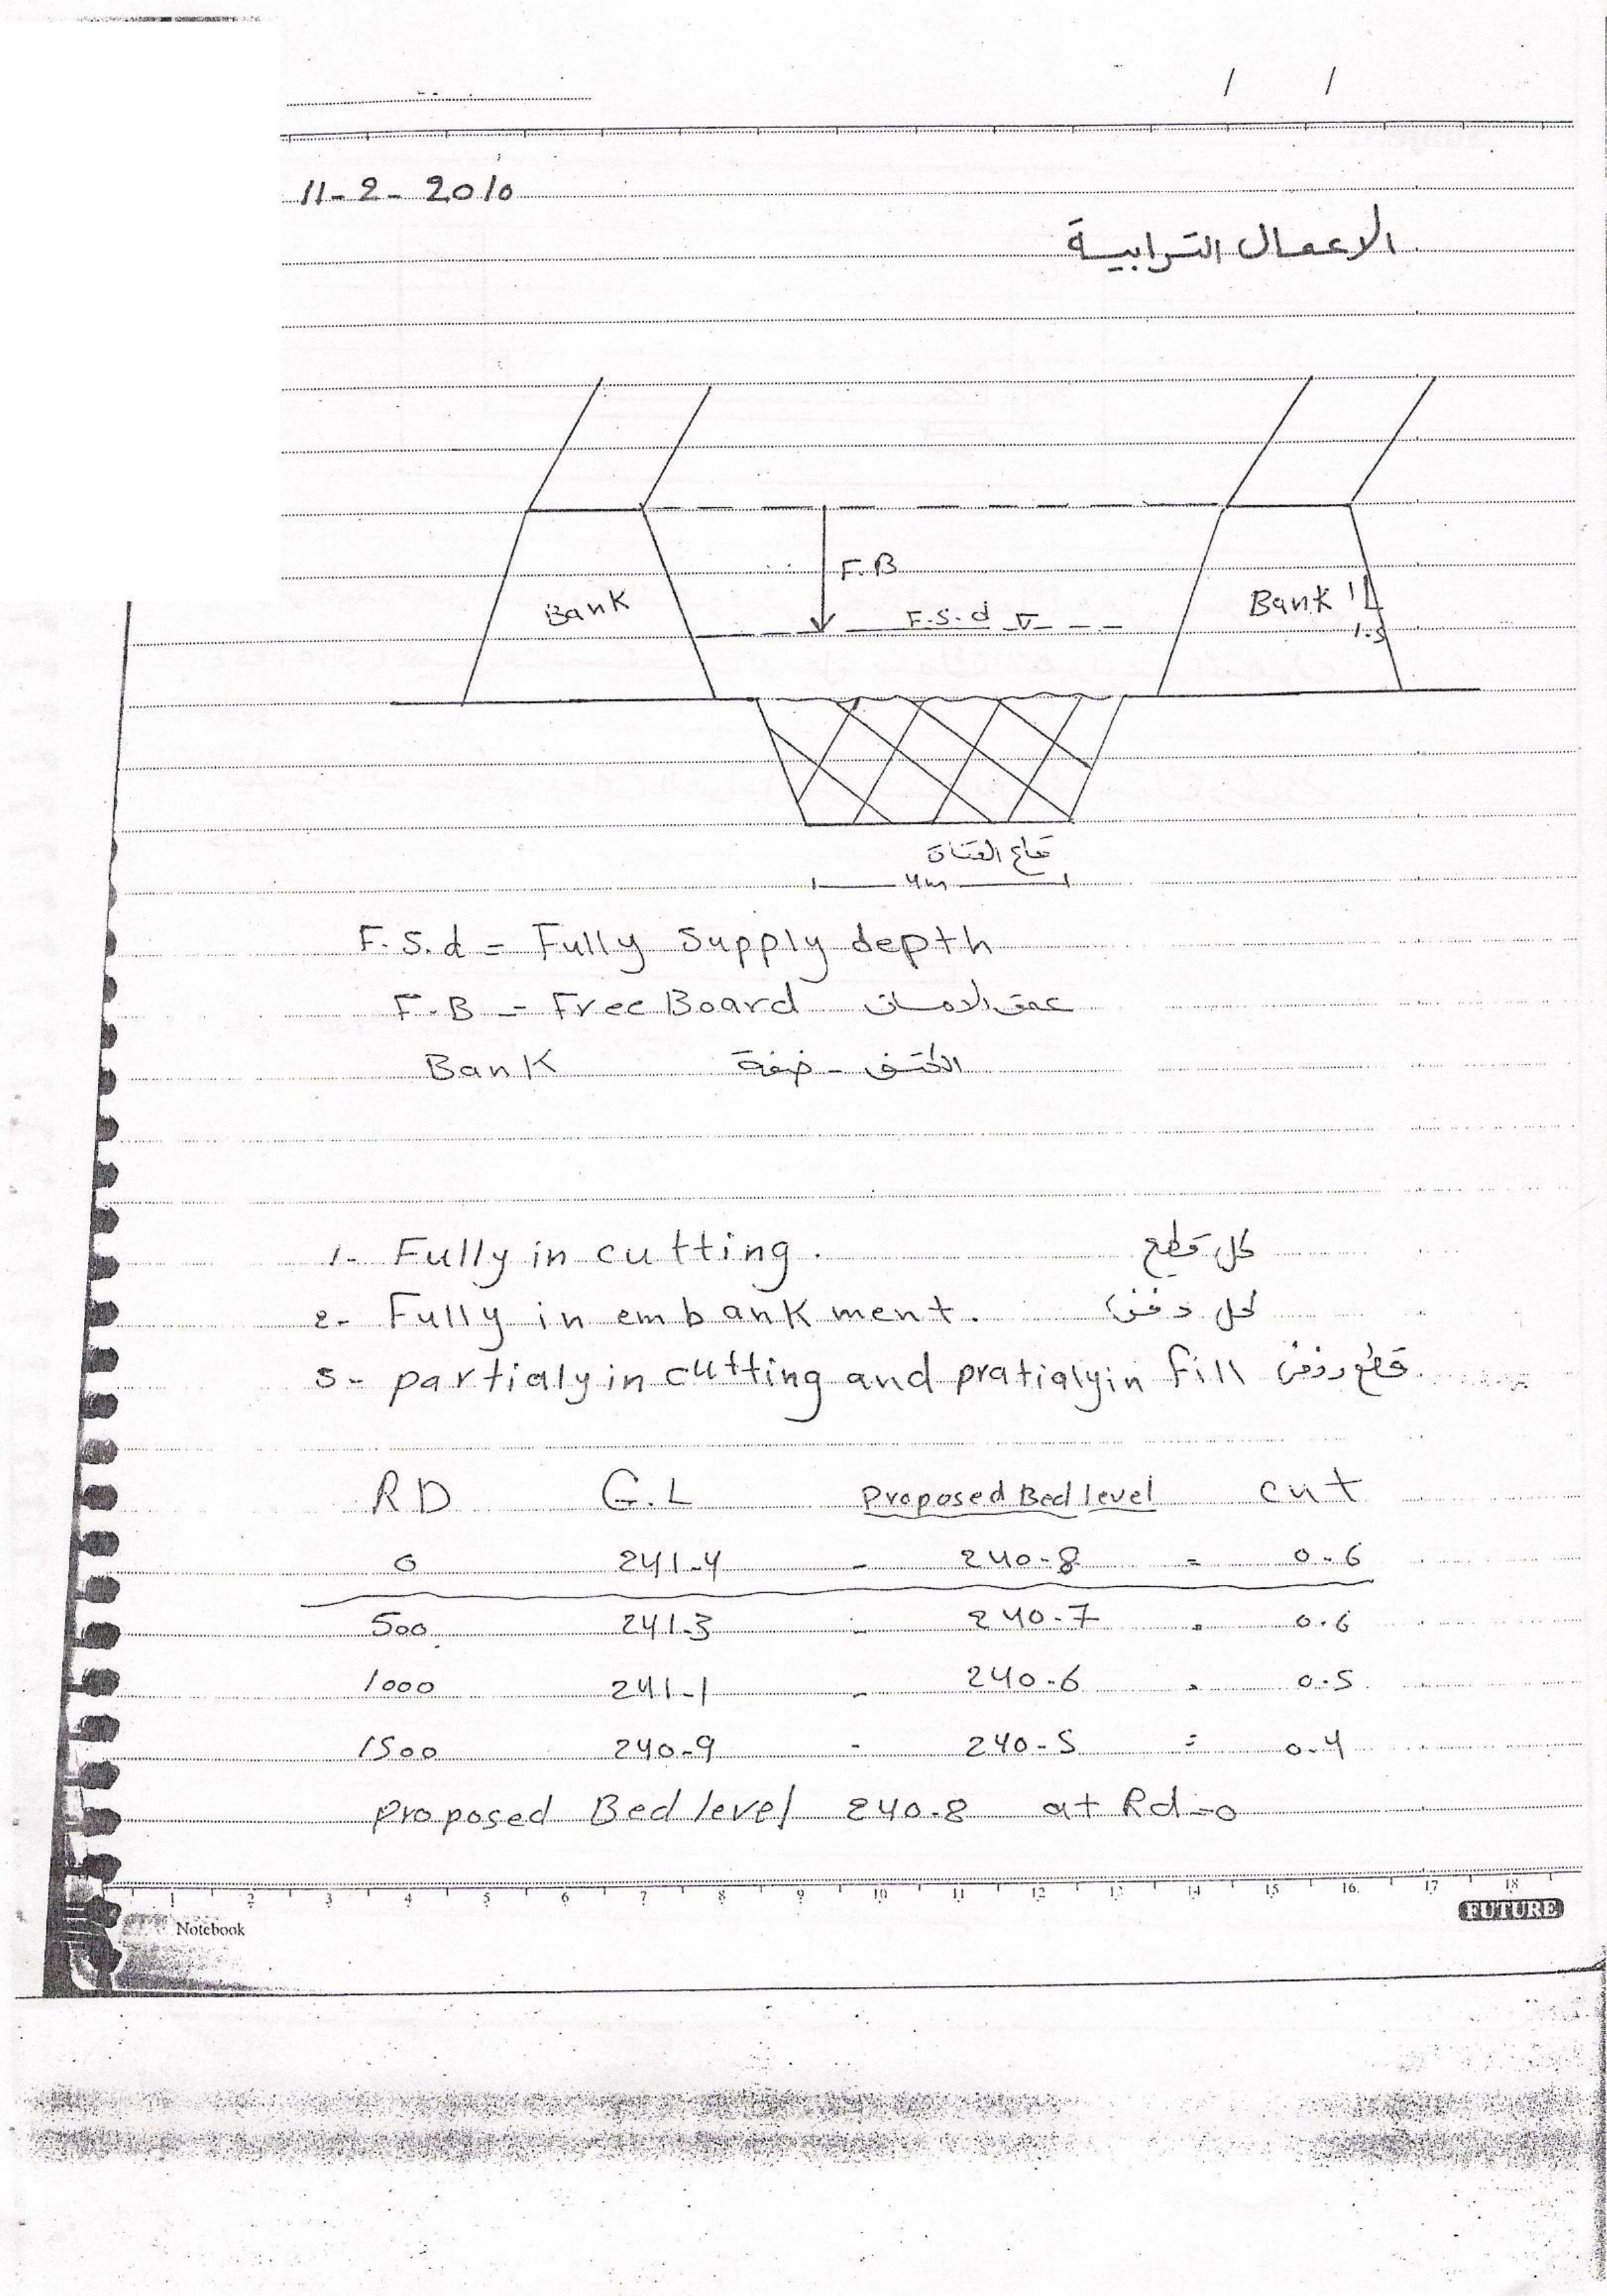 / /
11-2-2010
الاعمال الترابية
F.B
Bank
F.S.d
Bank
1
1.5
قاع القناة
4m
F.S.d = Fully Supply depth
F.B = Free Board عمق الامان
Bank الكتف - ضفة
1- Fully in cutting. كل قطع
2- Fully in embankment. كل دفن
3- partialy in cutting and pratialy in fill قطع ودفن
RD G.L Proposed Bed level cut
0 241.4 - 240.8 = 0.6
500 241.3 - 240.7 = 0.6
1000 241.1 - 240.6 = 0.5
1500 240.9 - 240.5 = 0.4
proposed Bed level 240.8 at Rd=0
1 2 3 4 5 6 7 8 9 10 11 12 13 14 15 16 17 18
Notebook
FUTURE